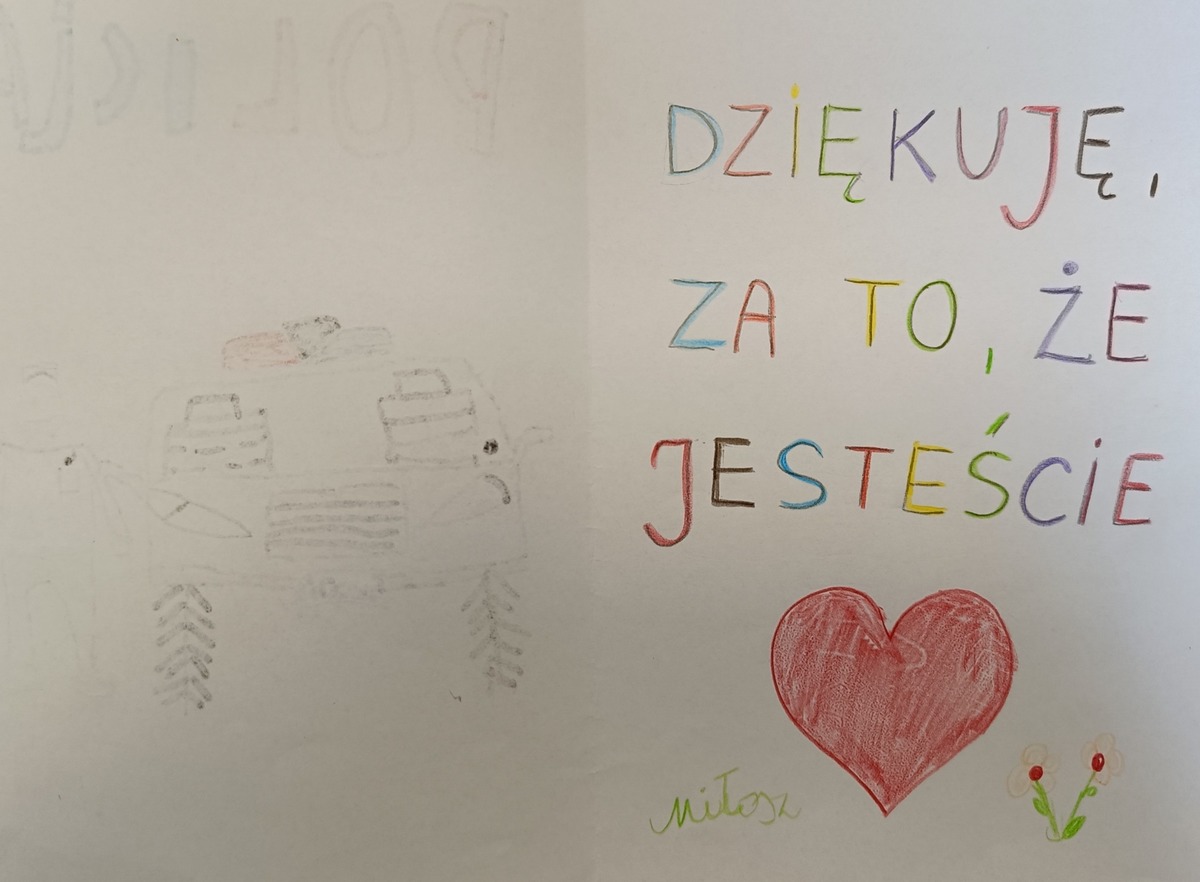 POLICJA
DZIĘKUJĘ,
ZA TO, ŻE
JESTEŚCIE
Miłosz